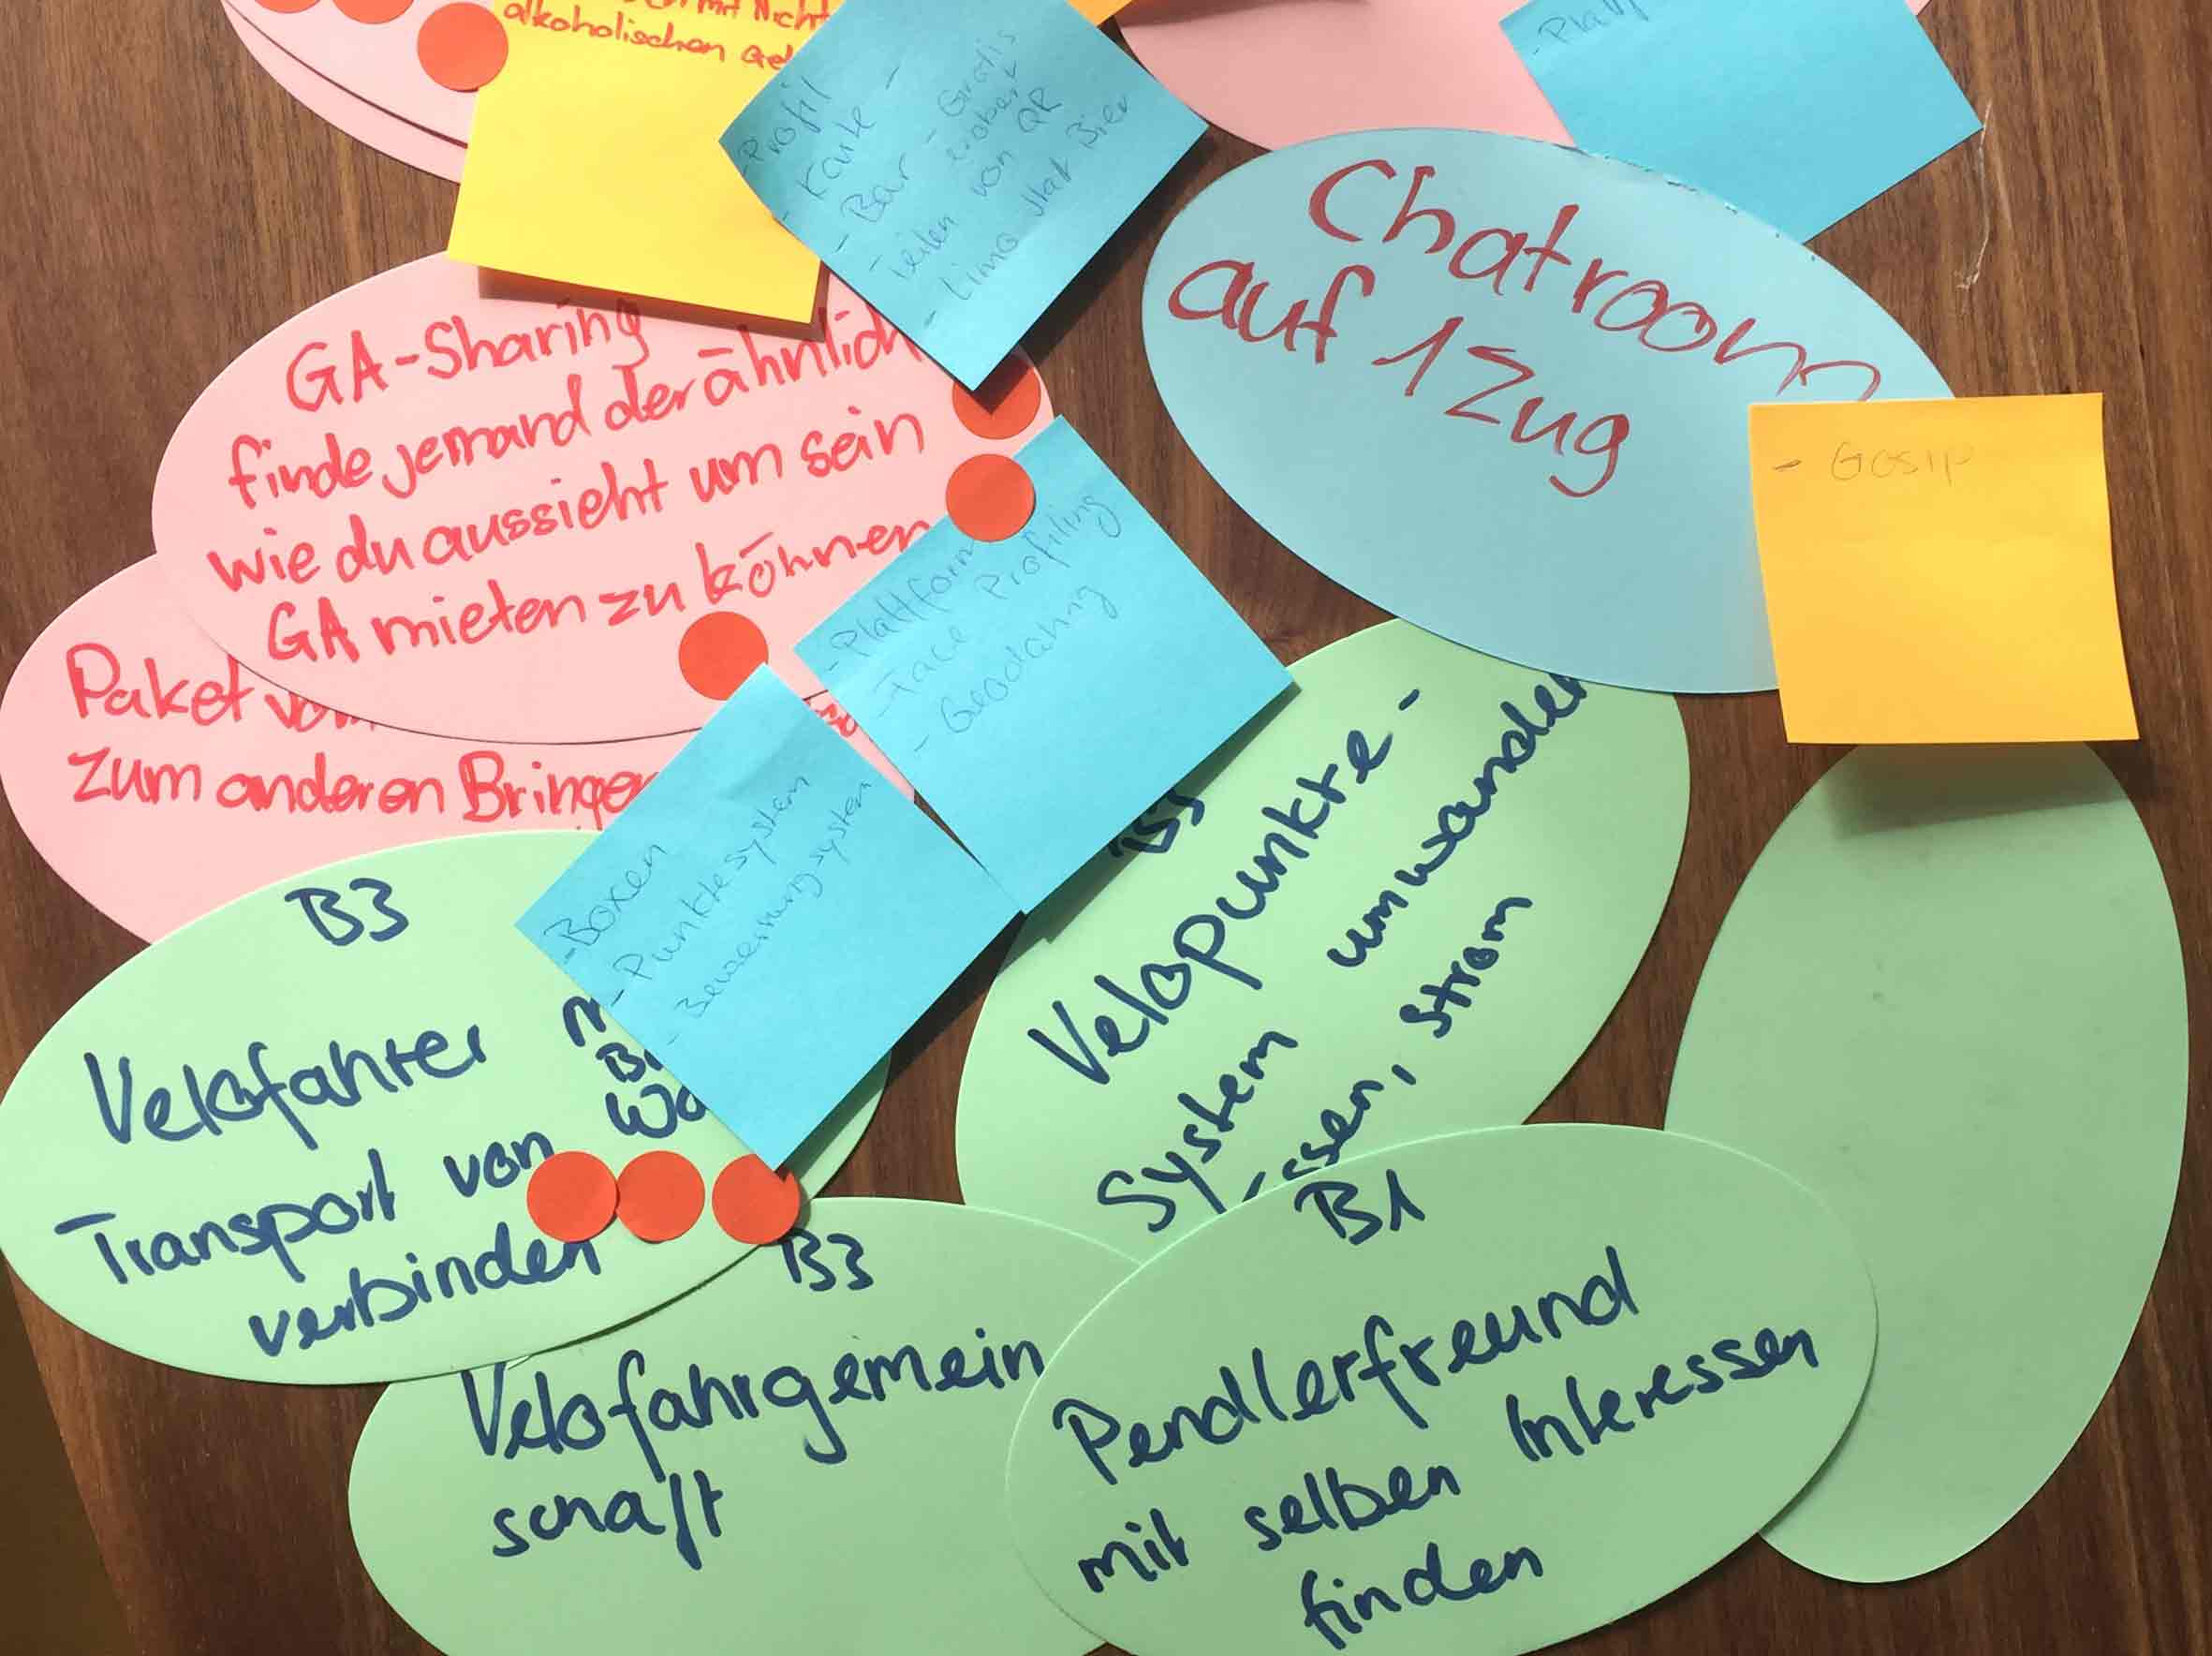 mit Nicht
alkoholischen
Profil
- Karte -
- Bar - Gratis
Teilen von QR
- Limo statt Bier
- Platt
Chatroom
auf 1 Zug
- Gosip
GA-Sharing
finde jemand der ähnlich
wie du aussieht um sein
GA mieten zu können
- Plattform
- Face Profiling
- Geodating
Paket vom
zum anderen Bringen
- Boxen
- Punktesystem
- Bewertungssystem
B3
Velofahrer
Transport von
verbinden
B3
Velopunkte-
System umwandeln
essen, Strom
B3
Velofahrgemein
schaft
B1
Pendlerfreund
mit selben Interessen
finden